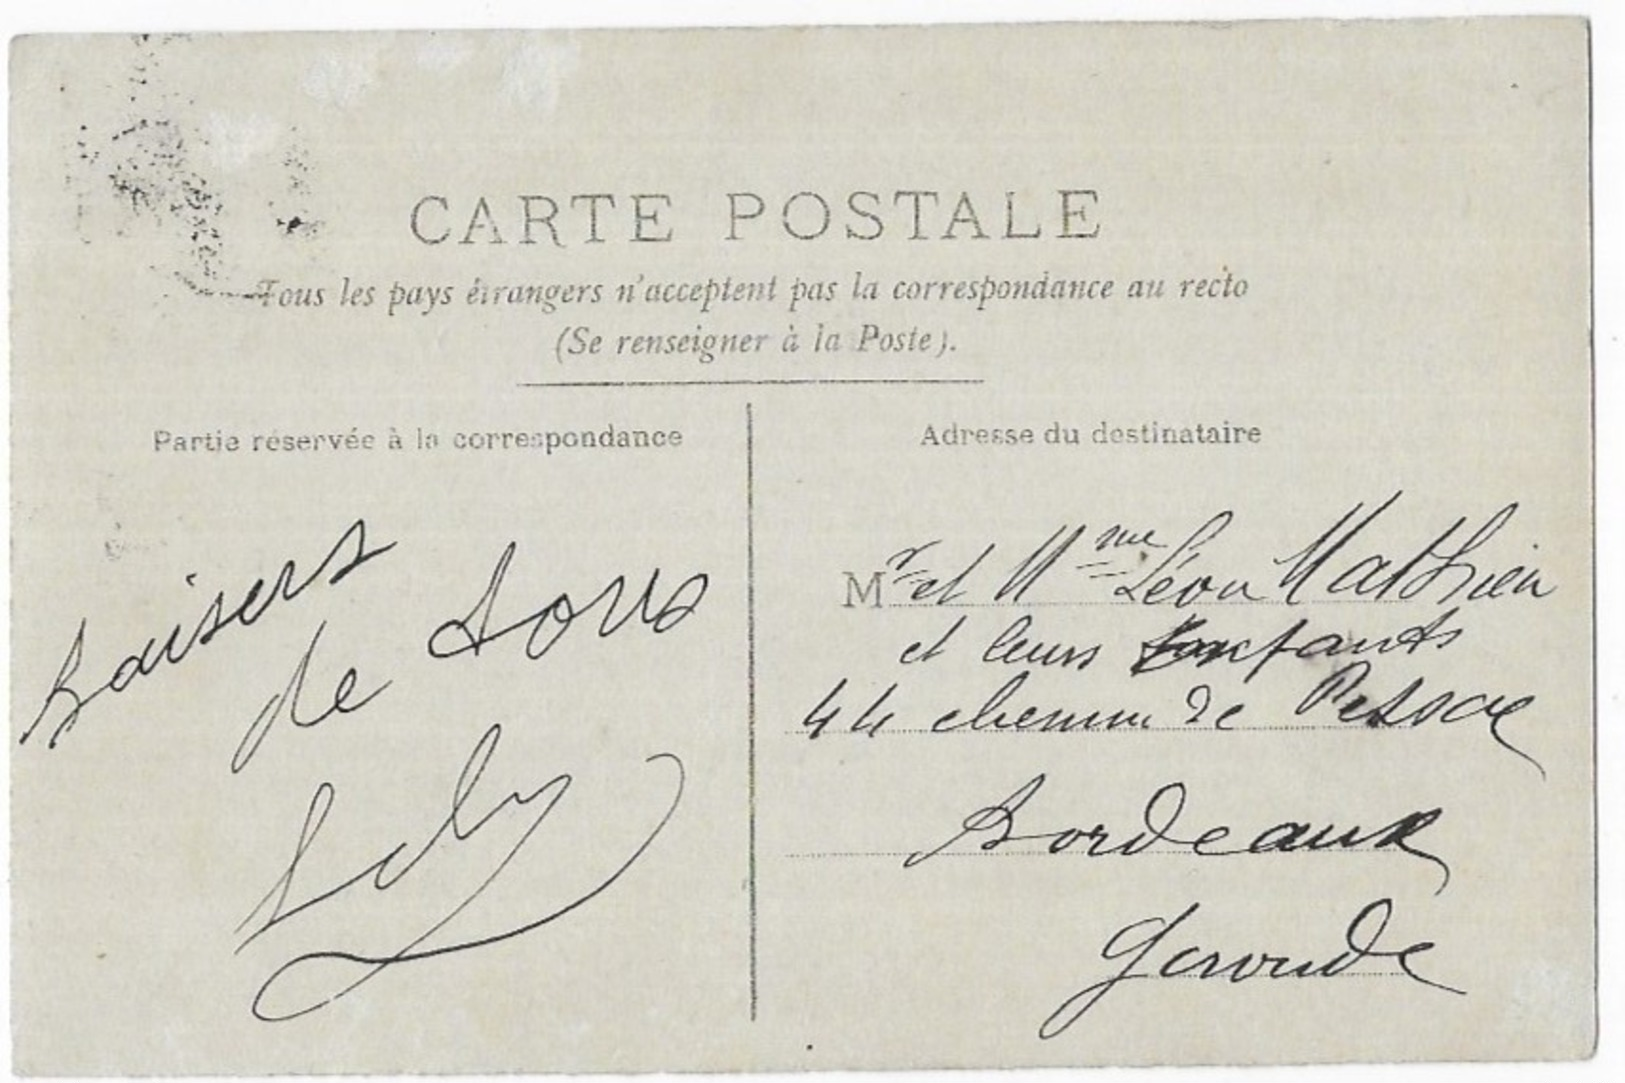 CARTE POSTALE
Tous les pays étrangers n'acceptent pas la correspondance au recto
(Se renseigner à la Poste).
Partie réservée à la correspondance
Baisers
de tous
Adresse du destinataire
Mr et Mme Léon Mathieu
et leurs Enfants
44 chemin de Pessac
Bordeaux
Gironde